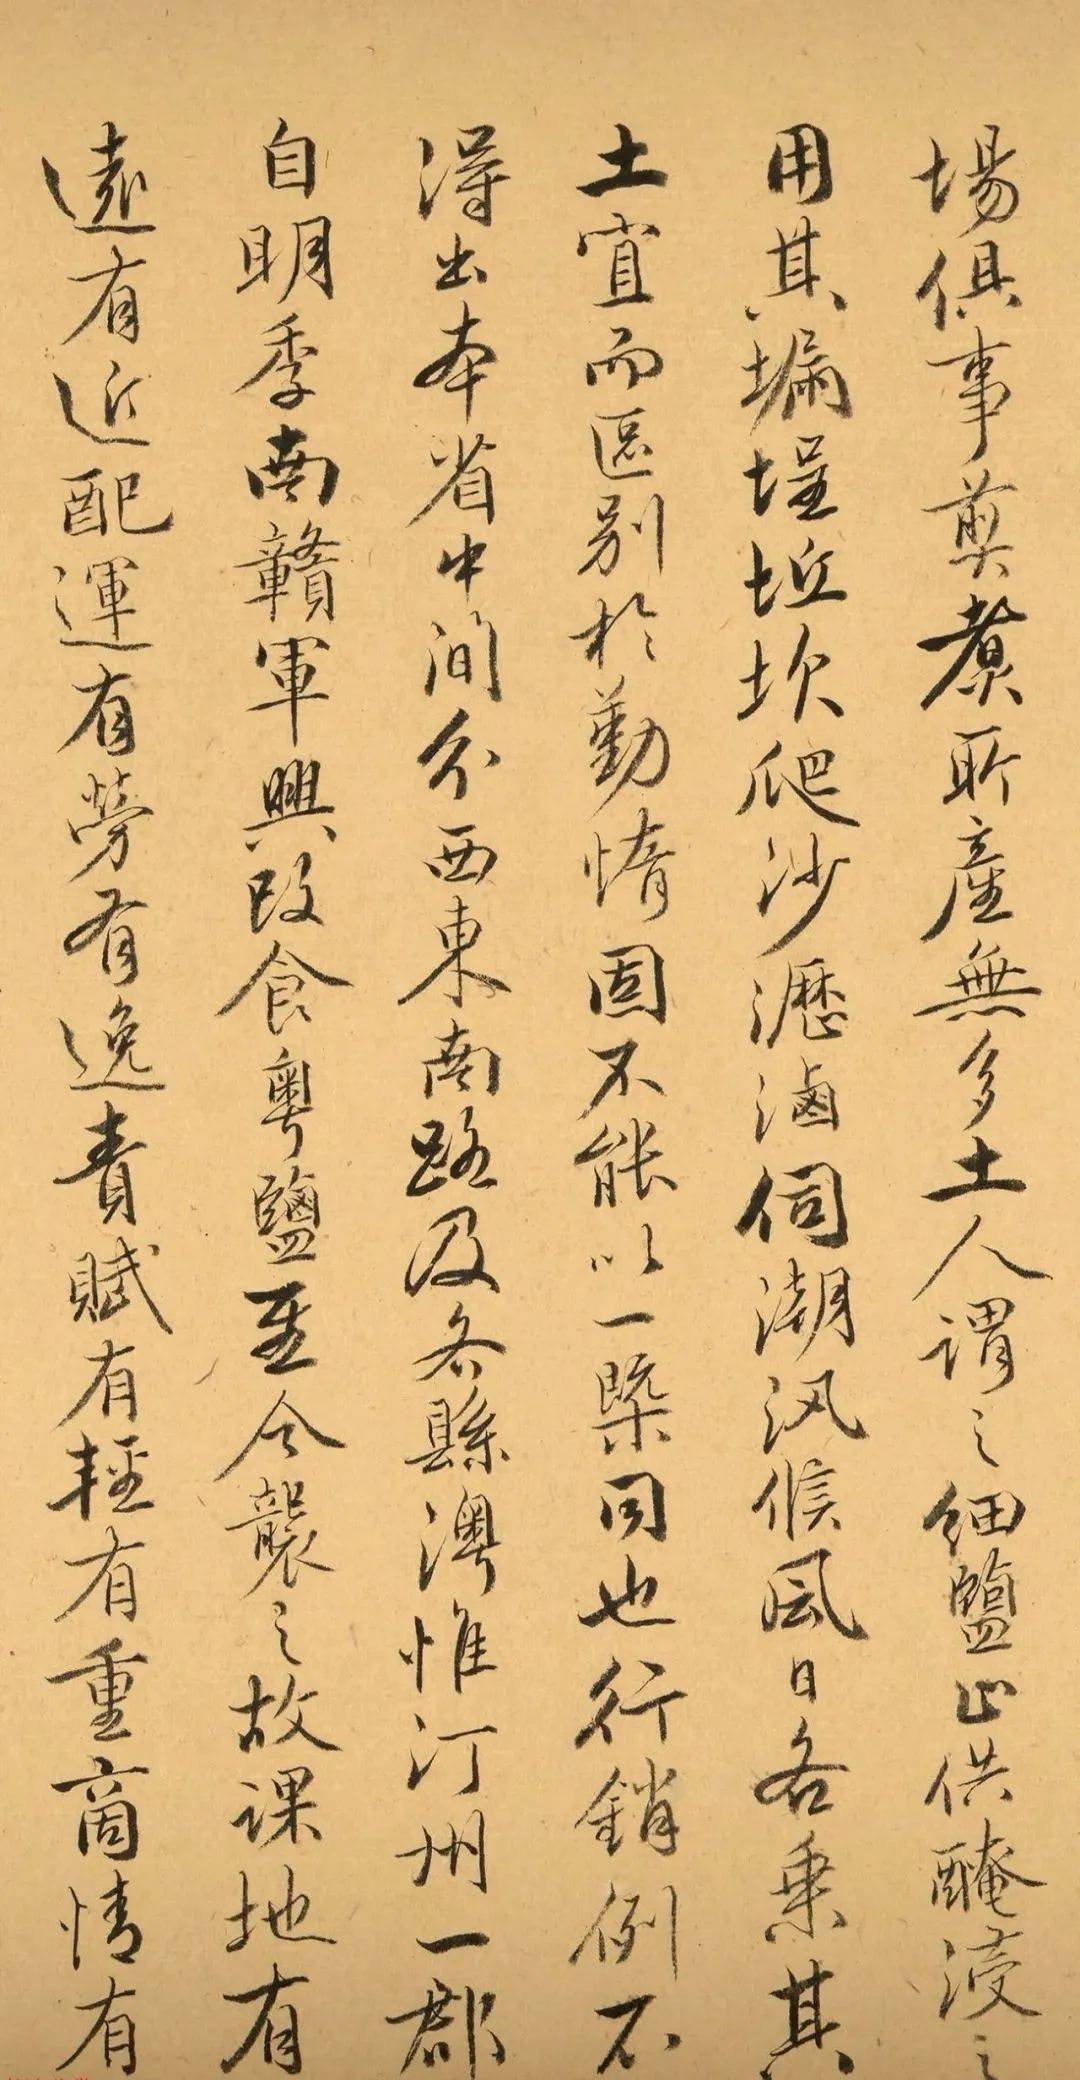 場俱事煎煮所產無多土人謂之細鹽止供醃浸之
用其塥埕坵坎爬沙瀝滷伺潮汛候風日各乘其
土宜而區別於勤惰固不能以一槩同也行銷例不
得出本省中間分西東南路及各縣澳惟汀州一郡
自明季南贛軍興改食粵鹽至今襲之故課地有
遠有近配運有勞有逸責賦有輕有重商情有